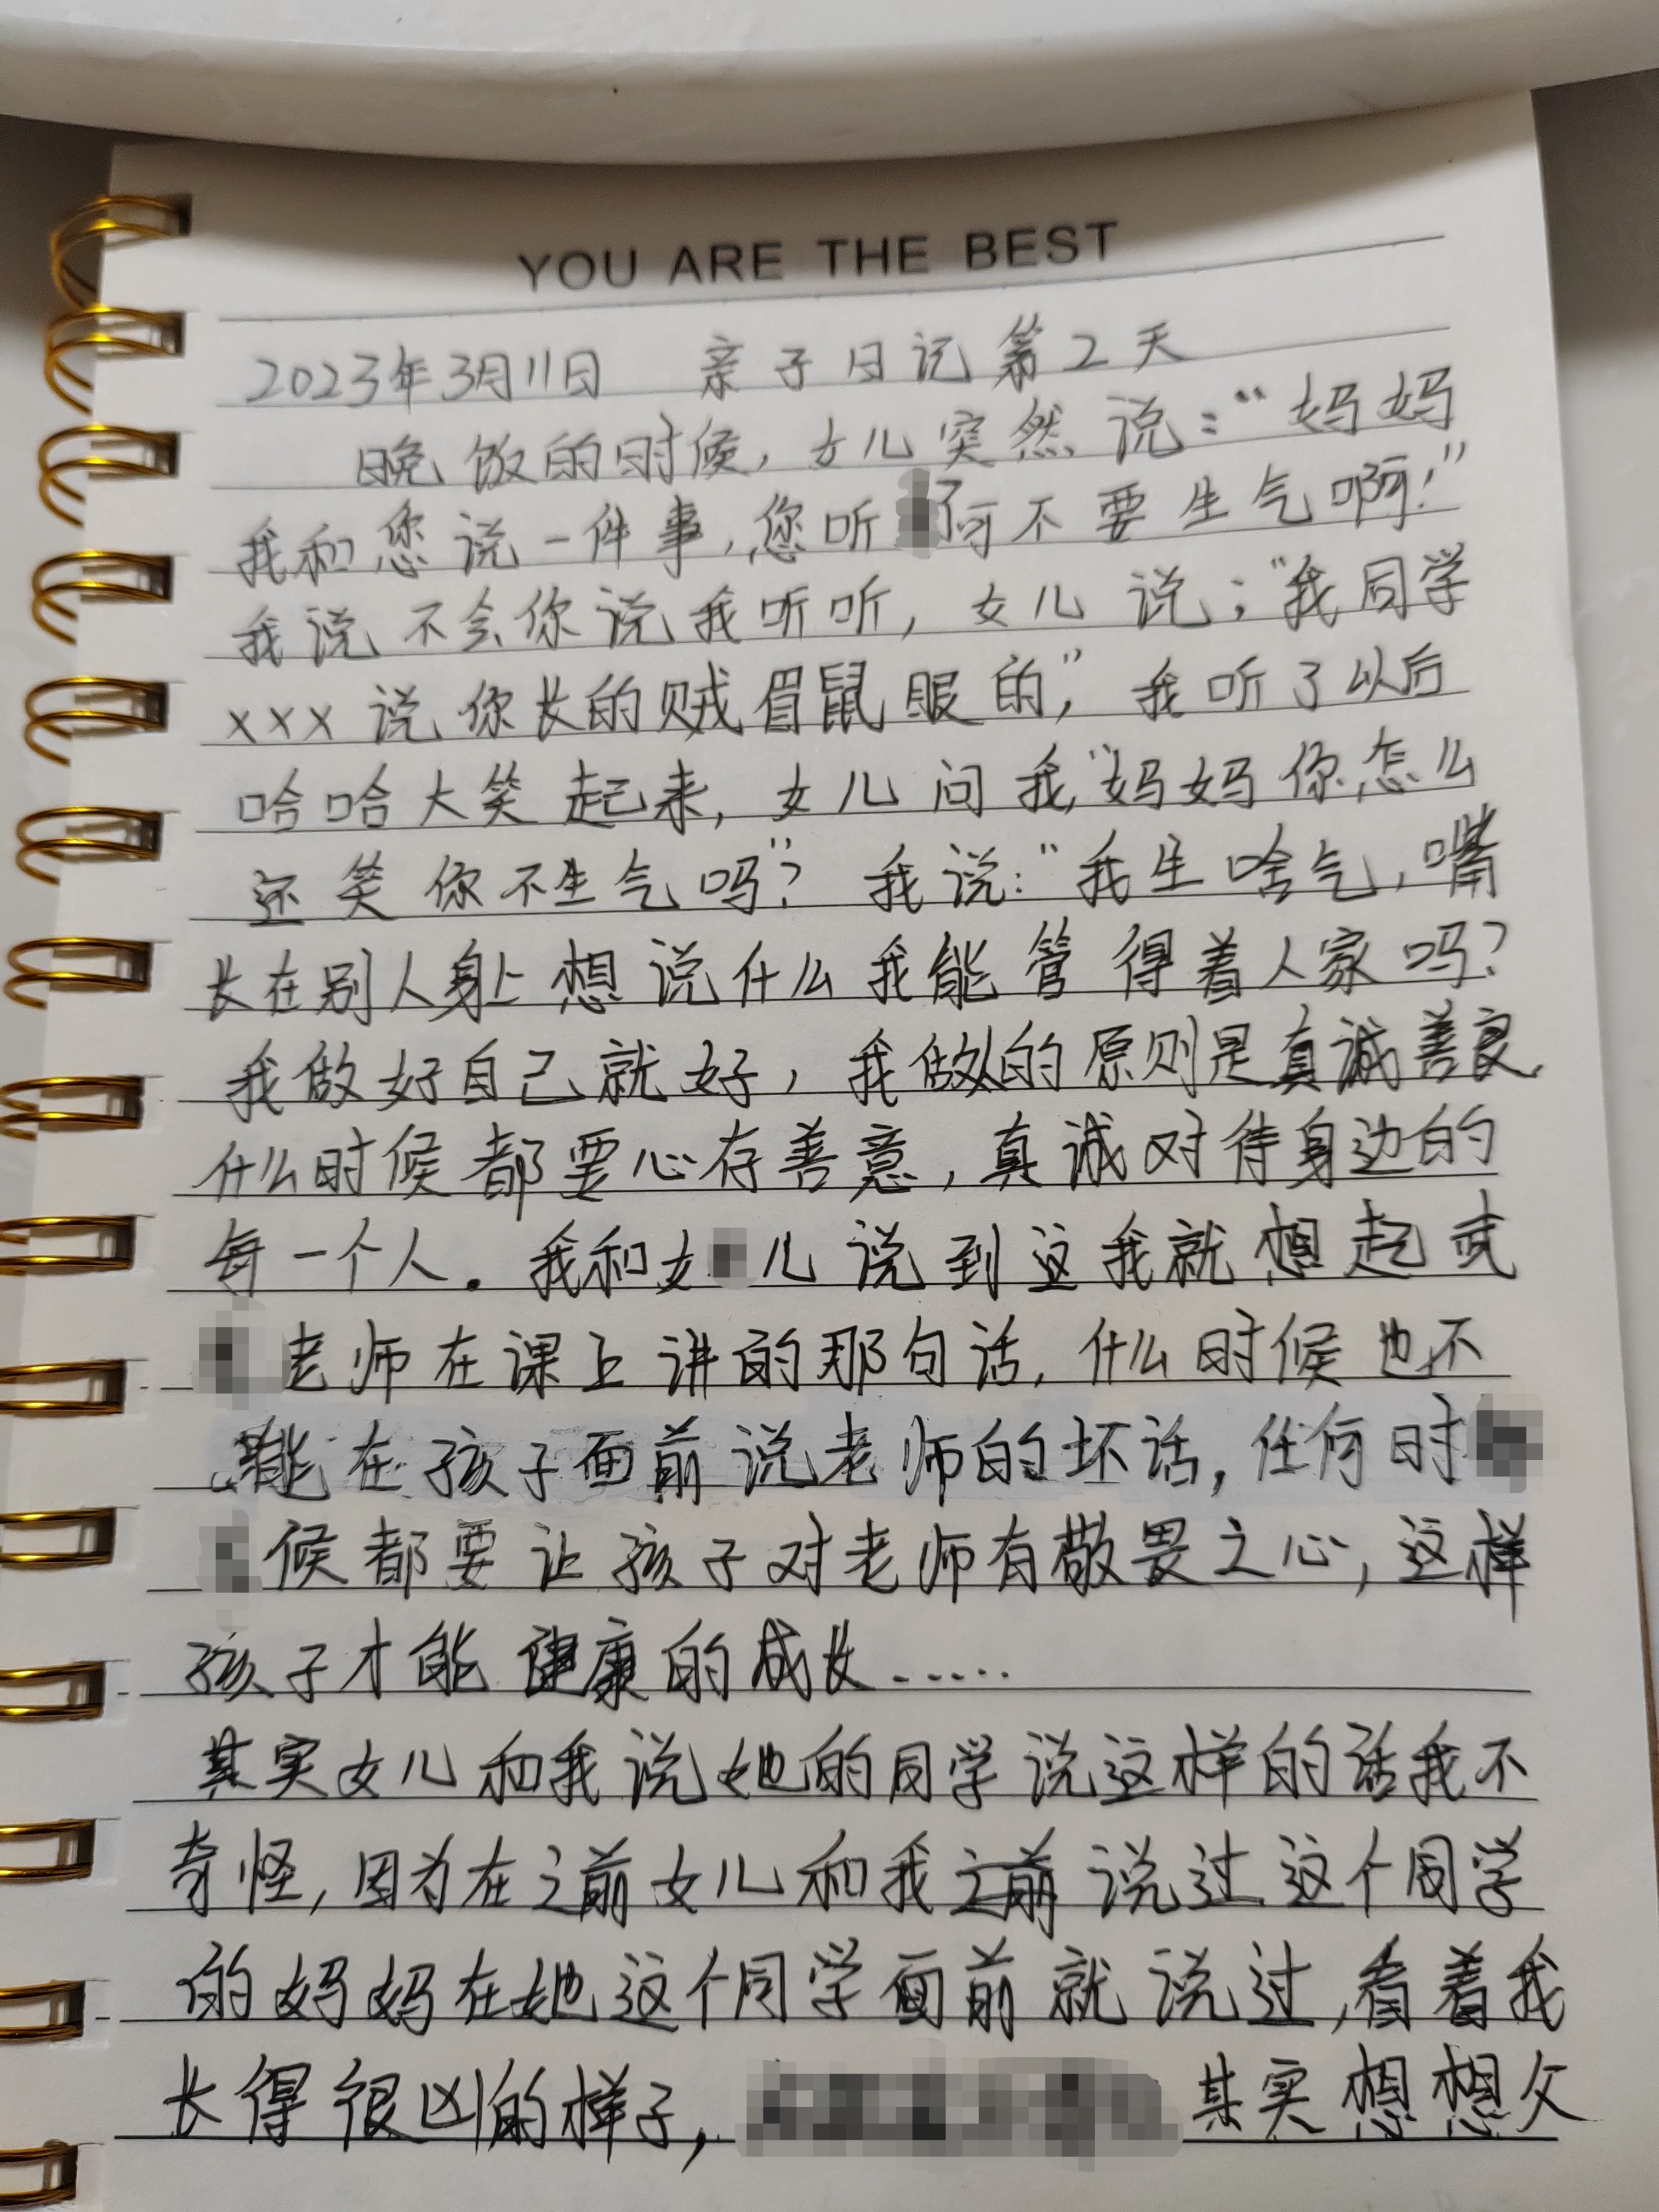 YOU ARE THE BEST
2023年3月11日 亲子日记第2天
晚饭的时候,女儿突然说:“妈妈
我和您说一件事,您听可不要生气啊!”
我说不会你说我听听,女儿说;“我同学
xxx说你长的贼眉鼠眼的,”我听了以后
哈哈大笑起来,女儿问我,“妈妈你怎么
还笑你不生气吗”?我说:“我生啥气,嘴
长在别人身上想说什么我能管得着人家吗?
我做好自己就好,我做人的原则是真诚善良,
什么时候都要心存善意,真诚对待身边的
每一个人。我和女儿说到这我就想起武
老师在课上讲的那句话,什么时候也不
能在孩子面前说老师的坏话,任何时
候都要让孩子对老师有敬畏之心,这样
孩子才能健康的成长……
其实女儿和我说她的同学说这样的话我不
奇怪,因为在之前女儿和我之前说过这个同学
的妈妈在她这个同学面前就说过,看着我
长得很凶的样子,其实想想父